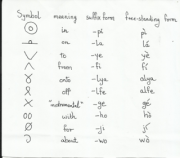 Symbol meaning suffix form free-standing form
in -pé
on -la lá
to -ye yè
from -fi fí
onto -lya alya
off -lfe alfe
-ge gé
with -hu hò
for -ji jí
about -wo wò